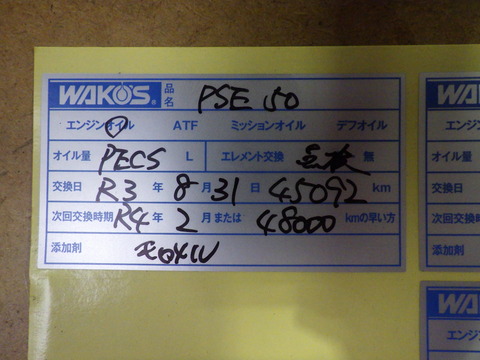 WAKO'S 品名 PSE 50
エンジンオイル ATF ミッションオイル デフオイル
オイル量 PECS L エレメント交換 無
交換日 R3 年 8 月 31 日 45092 km
次回交換時期 R4 年 2 月または 48000 kmの早い方
添加剤
WAKO
エンジンオ
オイル量
交換日
次回交換時
添加剤
WAKO
エンジンオ